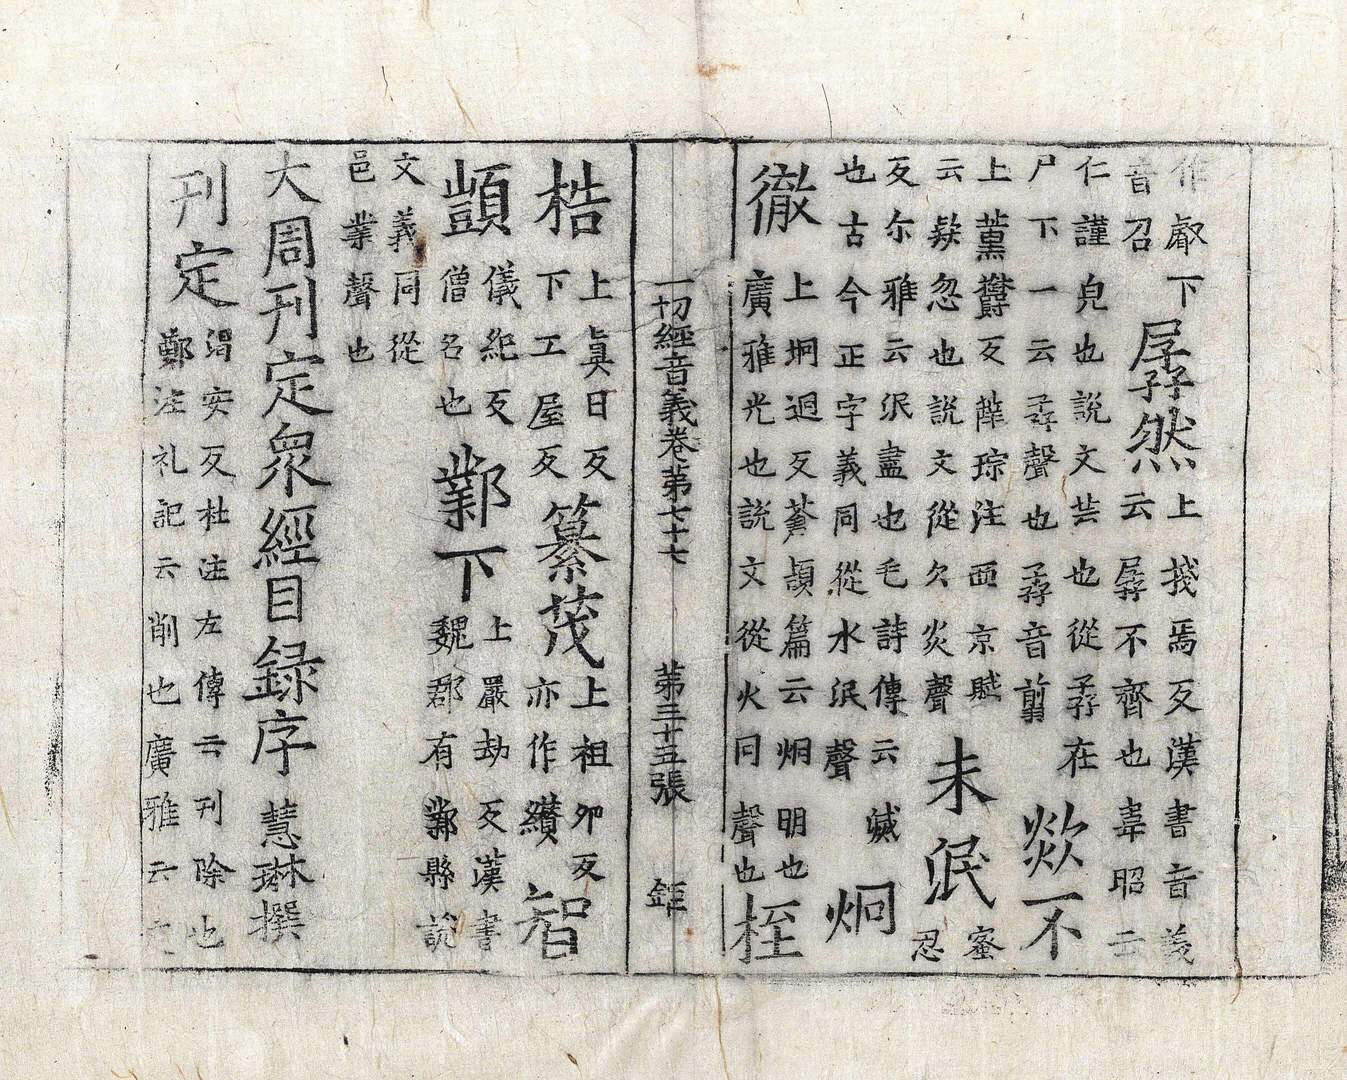 作㕡下音召孱然上㦮焉反漢書音義云孱不齊也韋昭云
仁謹皃也說文芸也從孨在尸下一云孨聲也孨音翦欻不
上薰欝反薛琮注西京賦云欻忽也說文從欠炎聲未泯蜜忍
反尒雅云泯盡也毛詩傳云滅也古今正字義同從水泯聲炯
徹上坰迥反蒼頡篇云炯明也廣雅光也說文從火冋聲也桎
一切經音義卷第七十七 第三十五張 鉅
梏上真日反下工屋反纂茂上祖卵反亦作纘智
顗儀紀反僧名也鄴下上嚴劫反漢書魏郡有鄴縣說
文義同從邑業聲也
大周刊定衆經目録序 慧琳撰
刊定渴安反杜注左傳云刊除也鄭注礼記云削也廣雅云